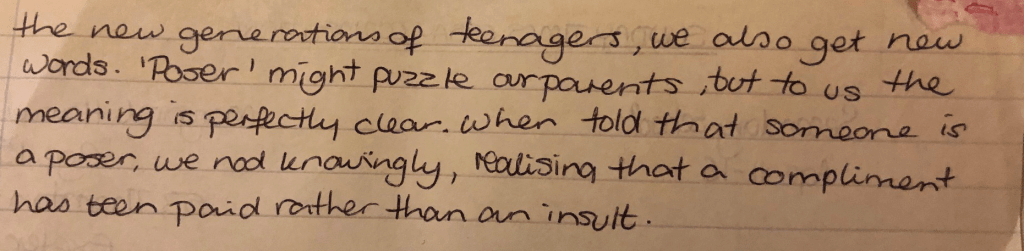 the new generations of teenagers, we also get new
words. 'Poser' might puzzle our parents, but to us the
meaning is perfectly clear. When told that someone is
a poser, we nod knowingly, realising that a compliment
has been paid rather than an insult.